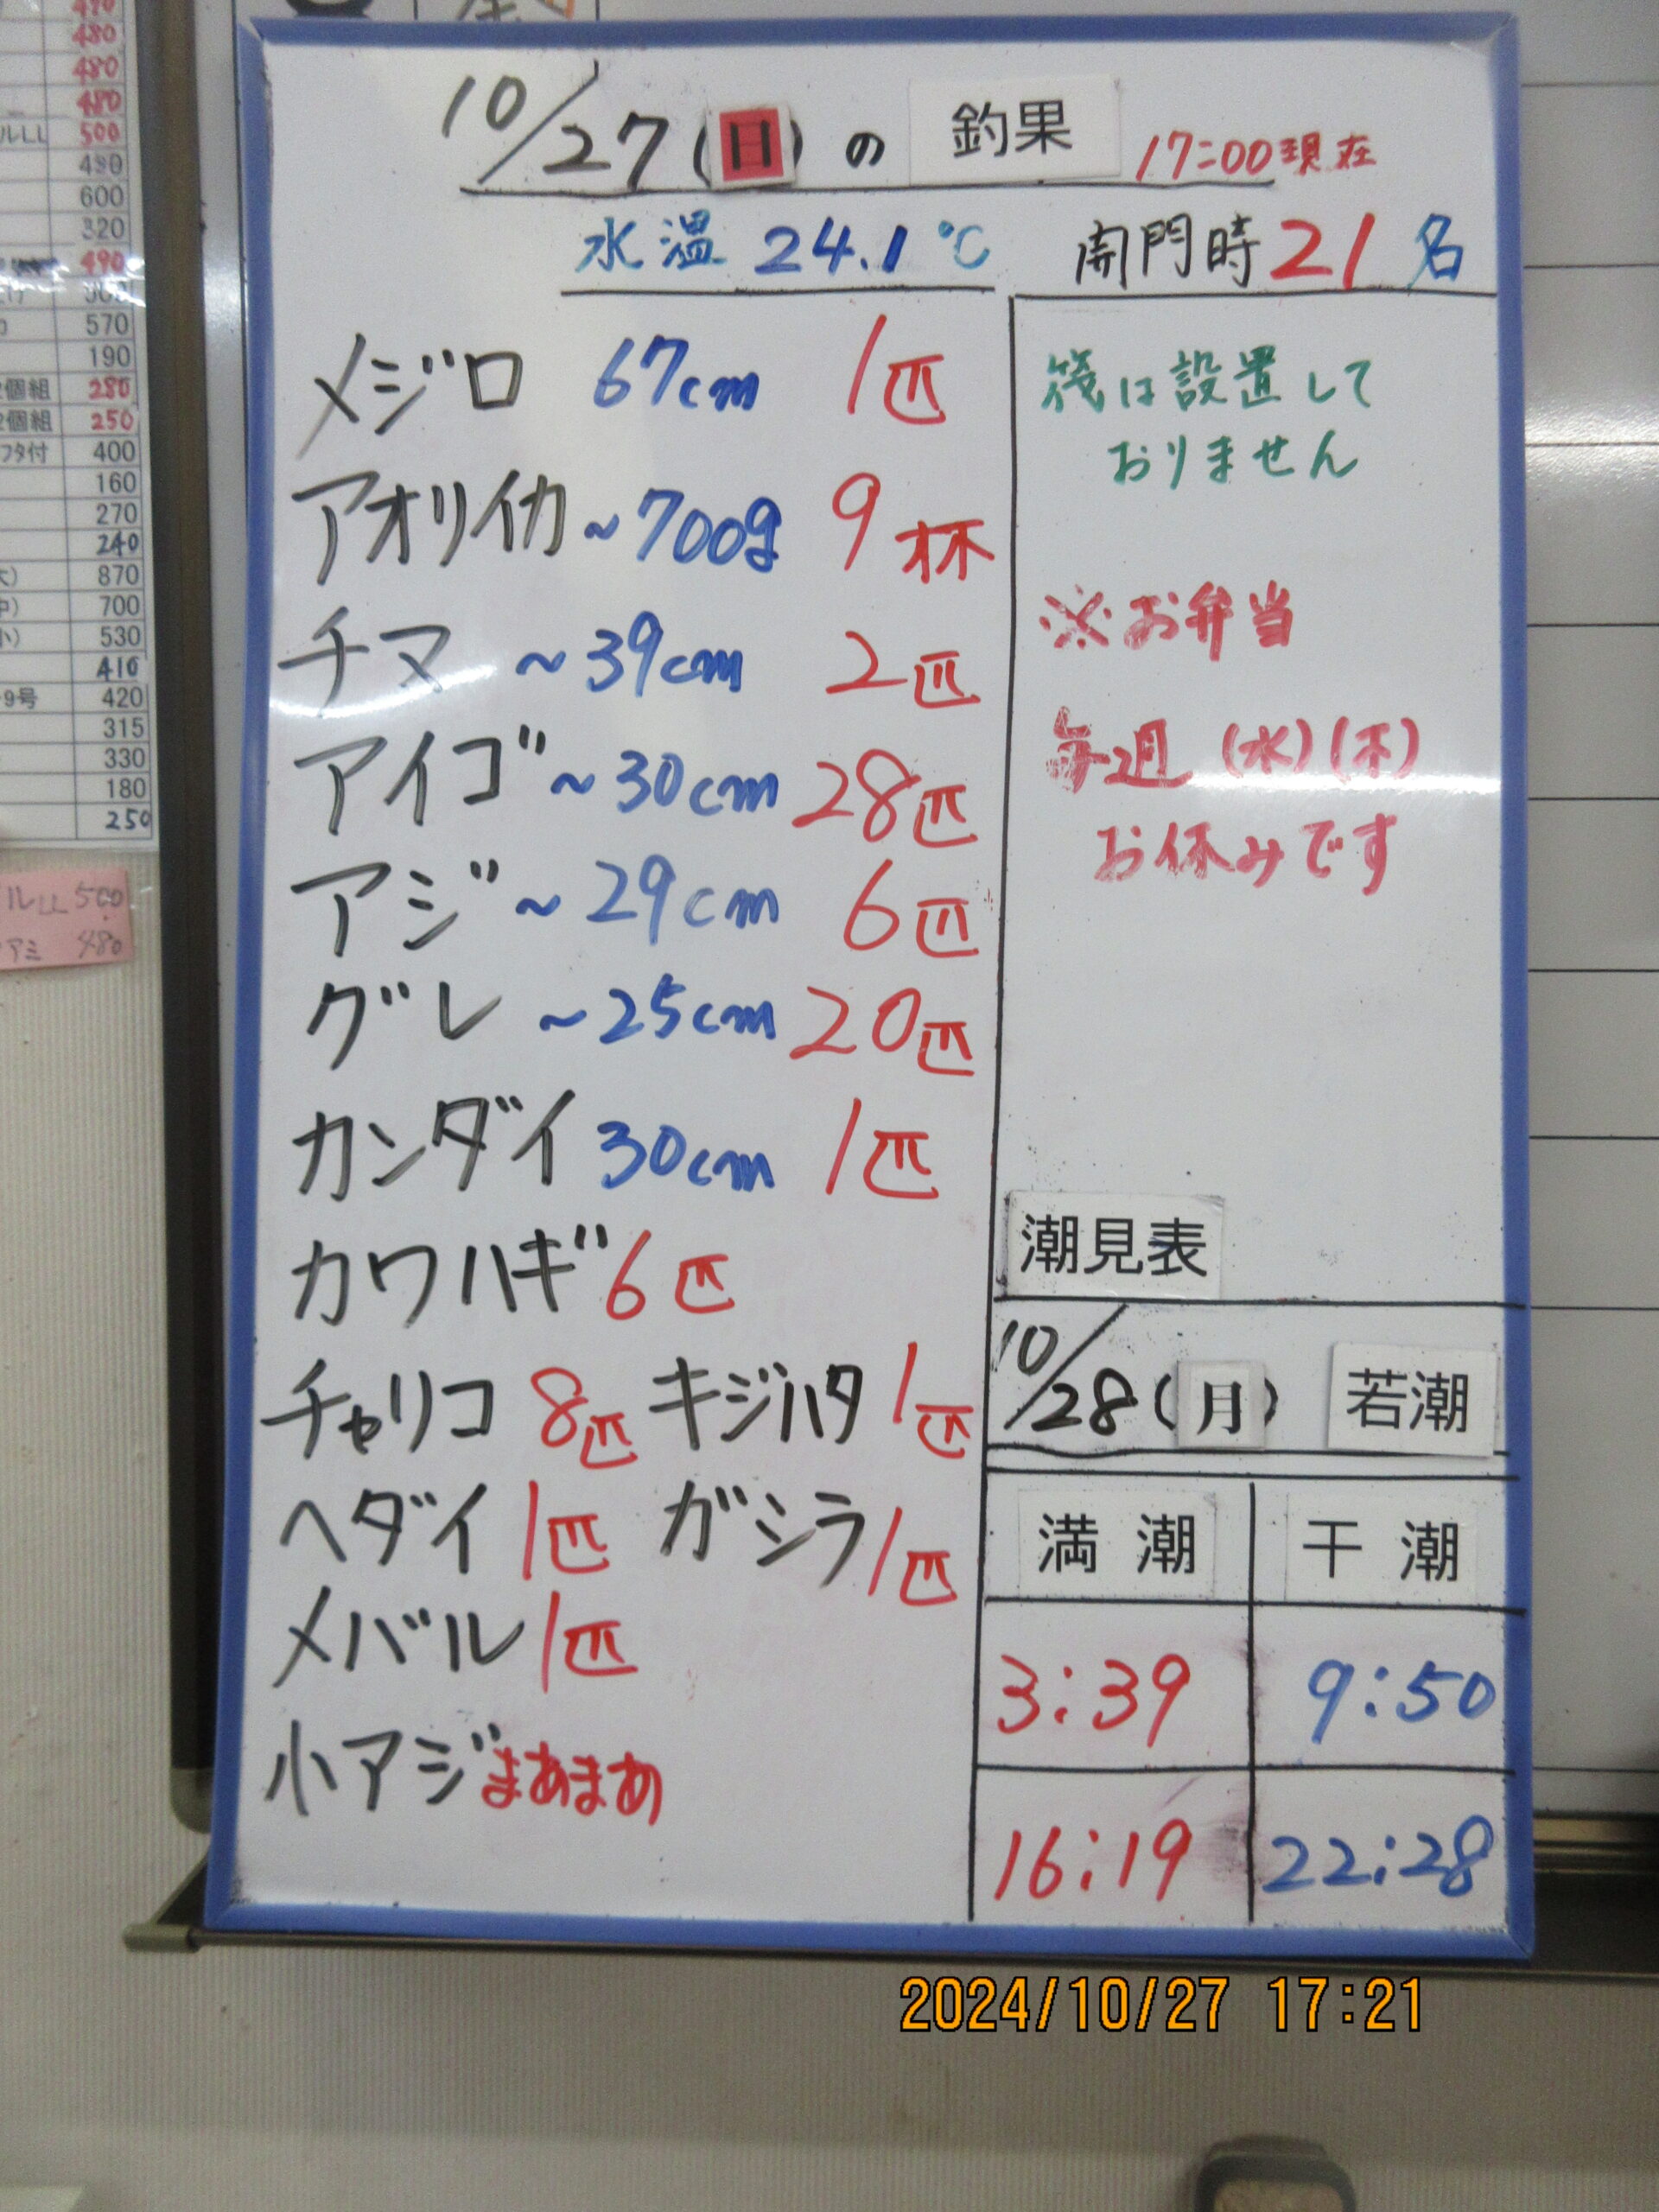 490
480
480
480
ルLL 500
490
600
320
490
570
190
2個組 280
2個組 250
フタ付 400
160
270
240
大) 870
中) 700
小) 530
410
9号 420
315
330
180
250
ルLL 500
アミ 480
10/27(日)の 釣果 17:00現在
水温 24.1℃ 開門時21名
メジロ 67cm 1匹
アオリイカ~700g 9杯
チヌ ~39cm 2匹
アイゴ~30cm 28匹
アジ~29cm 6匹
グレ ~25cm 20匹
カンダイ 30cm 1匹
カワハギ 6匹
チャリコ 8匹 キジハタ 1匹
ヘダイ 1匹 ガシラ 1匹
メバル 1匹
小アジまあまあ
筏は設置して
おりません
※お弁当
毎週(水)(木)
お休みです
潮見表
10/28(月) 若潮
満潮 干潮
3:39 9:50
16:19 22:28
2024/10/27 17:21